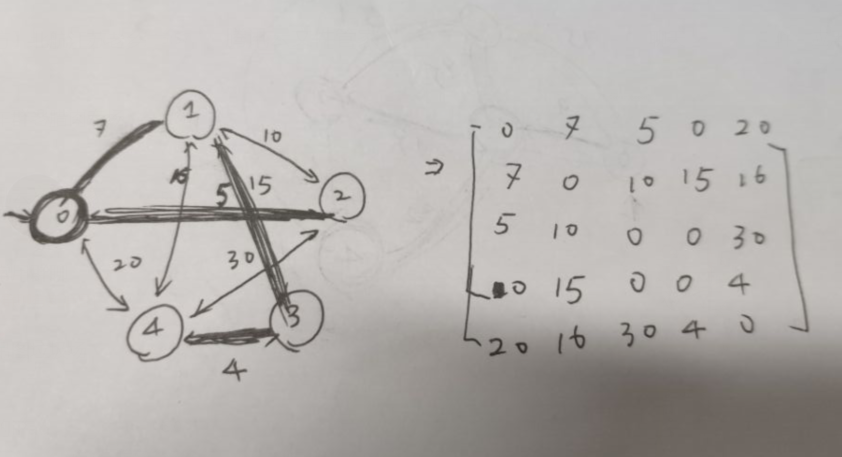 1
7
10
16
5
15
2
0
20
30
4
3
4
⇒
0 7 5 0 20
7 0 10 15 16
5 10 0 0 30
0 15 0 0 4
20 16 30 4 0